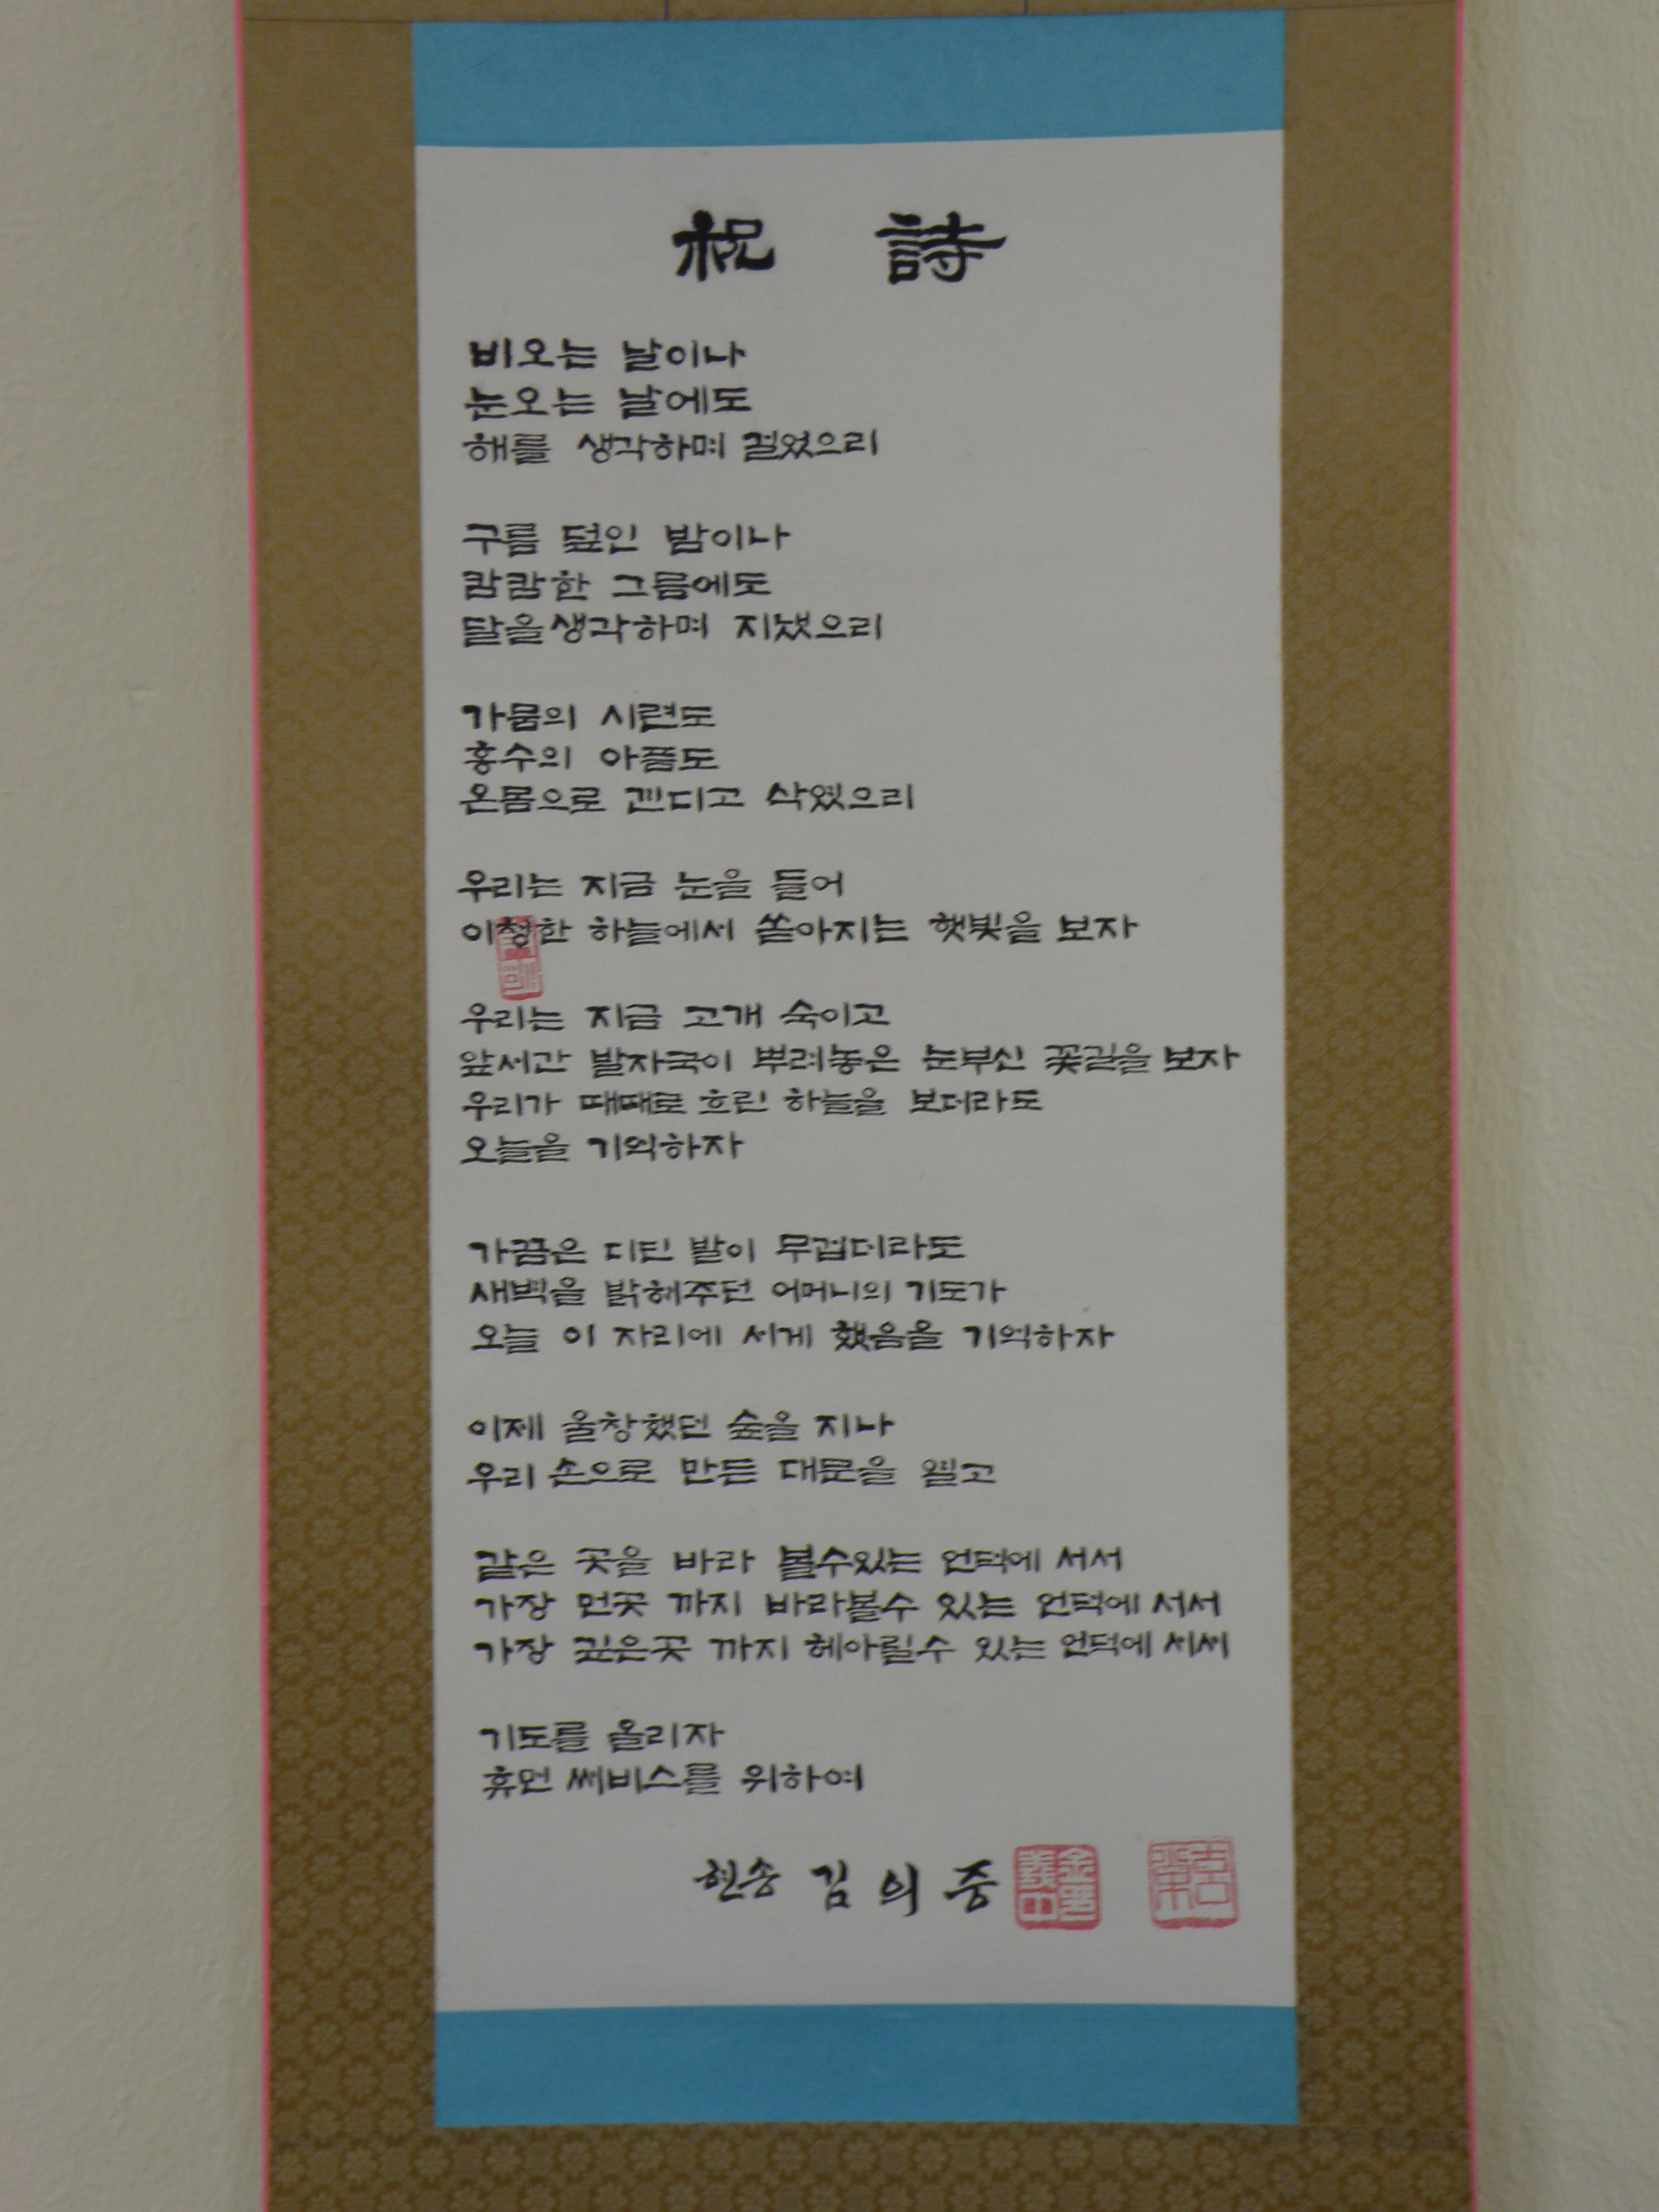 祝 詩
비오는 날이나
눈오는 날에도
해를 생각하며 걸었으리
구름 덮인 밤이나
캄캄한 그믐에도
달을 생각하며 지냈으리
가뭄의 시련도
홍수의 아픔도
온몸으로 견디고 삭였으리
우리는 지금 눈을 들어
이청한 하늘에서 쏟아지는 햇빛을 보자
우리는 지금 고개 숙이고
앞서간 발자국이 뿌려놓은 눈부신 꽃길을 보자
우리가 때때로 흐린 하늘을 보더라도
오늘을 기억하자
가끔은 디딘 발이 무겁더라도
새벽을 밝혀주던 어머니의 기도가
오늘 이 자리에 서게 했음을 기억하자
이제 울창했던 숲을 지나
우리 손으로 만든 대문을 열고
같은 곳을 바라 볼수있는 언덕에 서서
가장 먼곳 까지 바라볼수 있는 언덕에 서서
가장 깊은곳 까지 헤아릴수 있는 언덕에 서서
기도를 올리자
휴먼 써비스를 위하여
현송 김 의 중